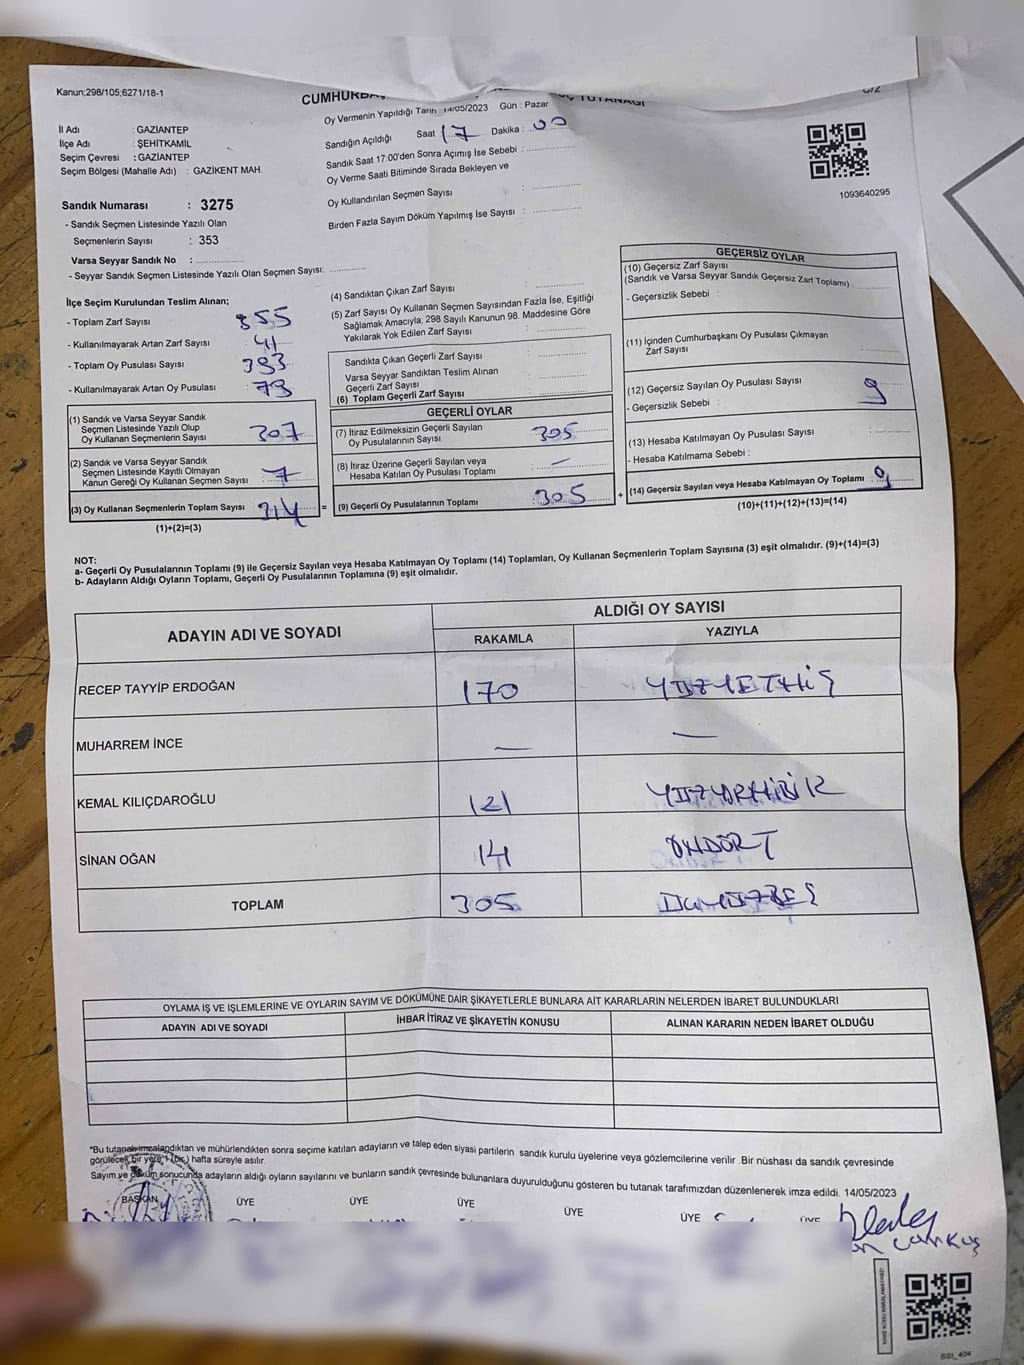 Kanun;298/105;6271/18-1
TUTANAĞI
Oy Vermenin Yapıldığı Tarih : 14/05/2023 Gün : Pazar
İl Adı : GAZİANTEP
İlçe Adı : ŞEHİTKAMİL
Seçim Çevresi : GAZİANTEP
Seçim Bölgesi (Mahalle Adı) : GAZİKENT MAH.
Sandığın Açıldığı Saat 17 Dakika : 00
Sandık Saat 17:00'den Sonra Açımış İse Sebebi :
Oy Verme Saati Bitiminde Sırada Bekleyen ve
Oy Kullandırılan Seçmen Sayısı :
Birden Fazla Sayım Döküm Yapılmış İse Sayısı :
1093640295
Sandık Numarası : 3275
- Sandık Seçmen Listesinde Yazılı Olan
Seçmenlerin Sayısı : 353
Varsa Seyyar Sandık No :
- Seyyar Sandık Seçmen Listesinde Yazılı Olan Seçmen Sayısı:
İlçe Seçim Kurulundan Teslim Alınan;
- Toplam Zarf Sayısı : 355
- Kullanılmayarak Artan Zarf Sayısı : 41
- Toplam Oy Pusulası Sayısı : 393
- Kullanılmayarak Artan Oy Pusulası : 79
(1) Sandık ve Varsa Seyyar Sandık
Seçmen Listesinde Yazılı Olup
Oy Kullanan Seçmenlerin Sayısı 307
(2) Sandık ve Varsa Seyyar Sandık
Seçmen Listesinde Kayıtlı Olmayan
Kanun Gereği Oy Kullanan Seçmen Sayısı : 7
(3) Oy Kullanan Seçmenlerin Toplam Sayısı 314 =
(1)+(2)=(3)
(4) Sandıktan Çıkan Zarf Sayısı :
(5) Zarf Sayısı Oy Kullanan Seçmen Sayısından Fazla İse, Eşitliği
Sağlamak Amacıyla; 298 Sayılı Kanunun 98. Maddesine Göre
Yakılarak Yok Edilen Zarf Sayısı :
Sandıkta Çıkan Geçerli Zarf Sayısı :
Varsa Seyyar Sandıktan Teslim Alınan
Geçerli Zarf Sayısı :
(6) Toplam Geçerli Zarf Sayısı :
GEÇERLİ OYLAR
(7) İtiraz Edilmeksizin Geçerli Sayılan
Oy Pusulalarının Sayısı : 305
(8) İtiraz Üzerine Geçerli Sayılan veya
Hesaba Katılan Oy Pusulası Toplamı : —
(9) Geçerli Oy Pusulalarının Toplamı : 305 +
GEÇERSİZ OYLAR
(10) Geçersiz Zarf Sayısı
(Sandık ve Varsa Seyyar Sandık Geçersiz Zarf Toplamı) :
- Geçersizlik Sebebi :
(11) İçinden Cumhurbaşkanı Oy Pusulası Çıkmayan
Zarf Sayısı
(12) Geçersiz Sayılan Oy Pusulası Sayısı : 9
- Geçersizlik Sebebi :
(13) Hesaba Katılmayan Oy Pusulası Sayısı :
- Hesaba Katılmama Sebebi :
(14) Geçersiz Sayılan veya Hesaba Katılmayan Oy Toplamı : 9
(10)+(11)+(12)+(13)=(14)
NOT:
a- Geçerli Oy Pusulalarının Toplamı (9) ile Geçersiz Sayılan veya Hesaba Katılmayan Oy Toplamı (14) Toplamları, Oy Kullanan Seçmenlerin Toplam Sayısına (3) eşit olmalıdır. (9)+(14)=(3)
b- Adayların Aldığı Oyların Toplamı, Geçerli Oy Pusulalarının Toplamına (9) eşit olmalıdır.
ADAYIN ADI VE SOYADI
ALDIĞI OY SAYISI
RAKAMLA YAZIYLA
RECEP TAYYİP ERDOĞAN 170 YÜZYETMİŞ
MUHARREM İNCE — —
KEMAL KILIÇDAROĞLU 121 YÜZYİRMİBİR
SİNAN OĞAN 14 ONDÖRT
TOPLAM 305 ÜÇYÜZBEŞ
OYLAMA İŞ VE İŞLEMLERİNE VE OYLARIN SAYIM VE DÖKÜMÜNE DAİR ŞİKAYETLERLE BUNLARA AİT KARARLARIN NELERDEN İBARET BULUNDUKLARI
ADAYIN ADI VE SOYADI İHBAR İTİRAZ VE ŞİKAYETİN KONUSU ALINAN KARARIN NEDEN İBARET OLDUĞU
*Bu tutanak imzalandıktan ve mühürlendikten sonra seçime katılan adayların ve talep eden siyasi partilerin sandık kurulu üyelerine veya gözlemcilerine verilir .Bir nüshası da sandık çevresinde
görülecek bir yere 1 (bir) hafta süreyle asılır.
Sayım ve döküm sonucunda adayların aldığı oyların sayılarını ve bunların sandık çevresinde bulunanlara duyurulduğunu gösteren bu tutanak tarafımızdan düzenlenerek imza edildi. 14/05/2023
BAŞKAN ÜYE ÜYE ÜYE ÜYE ÜYE ÜYE
SSİ_404